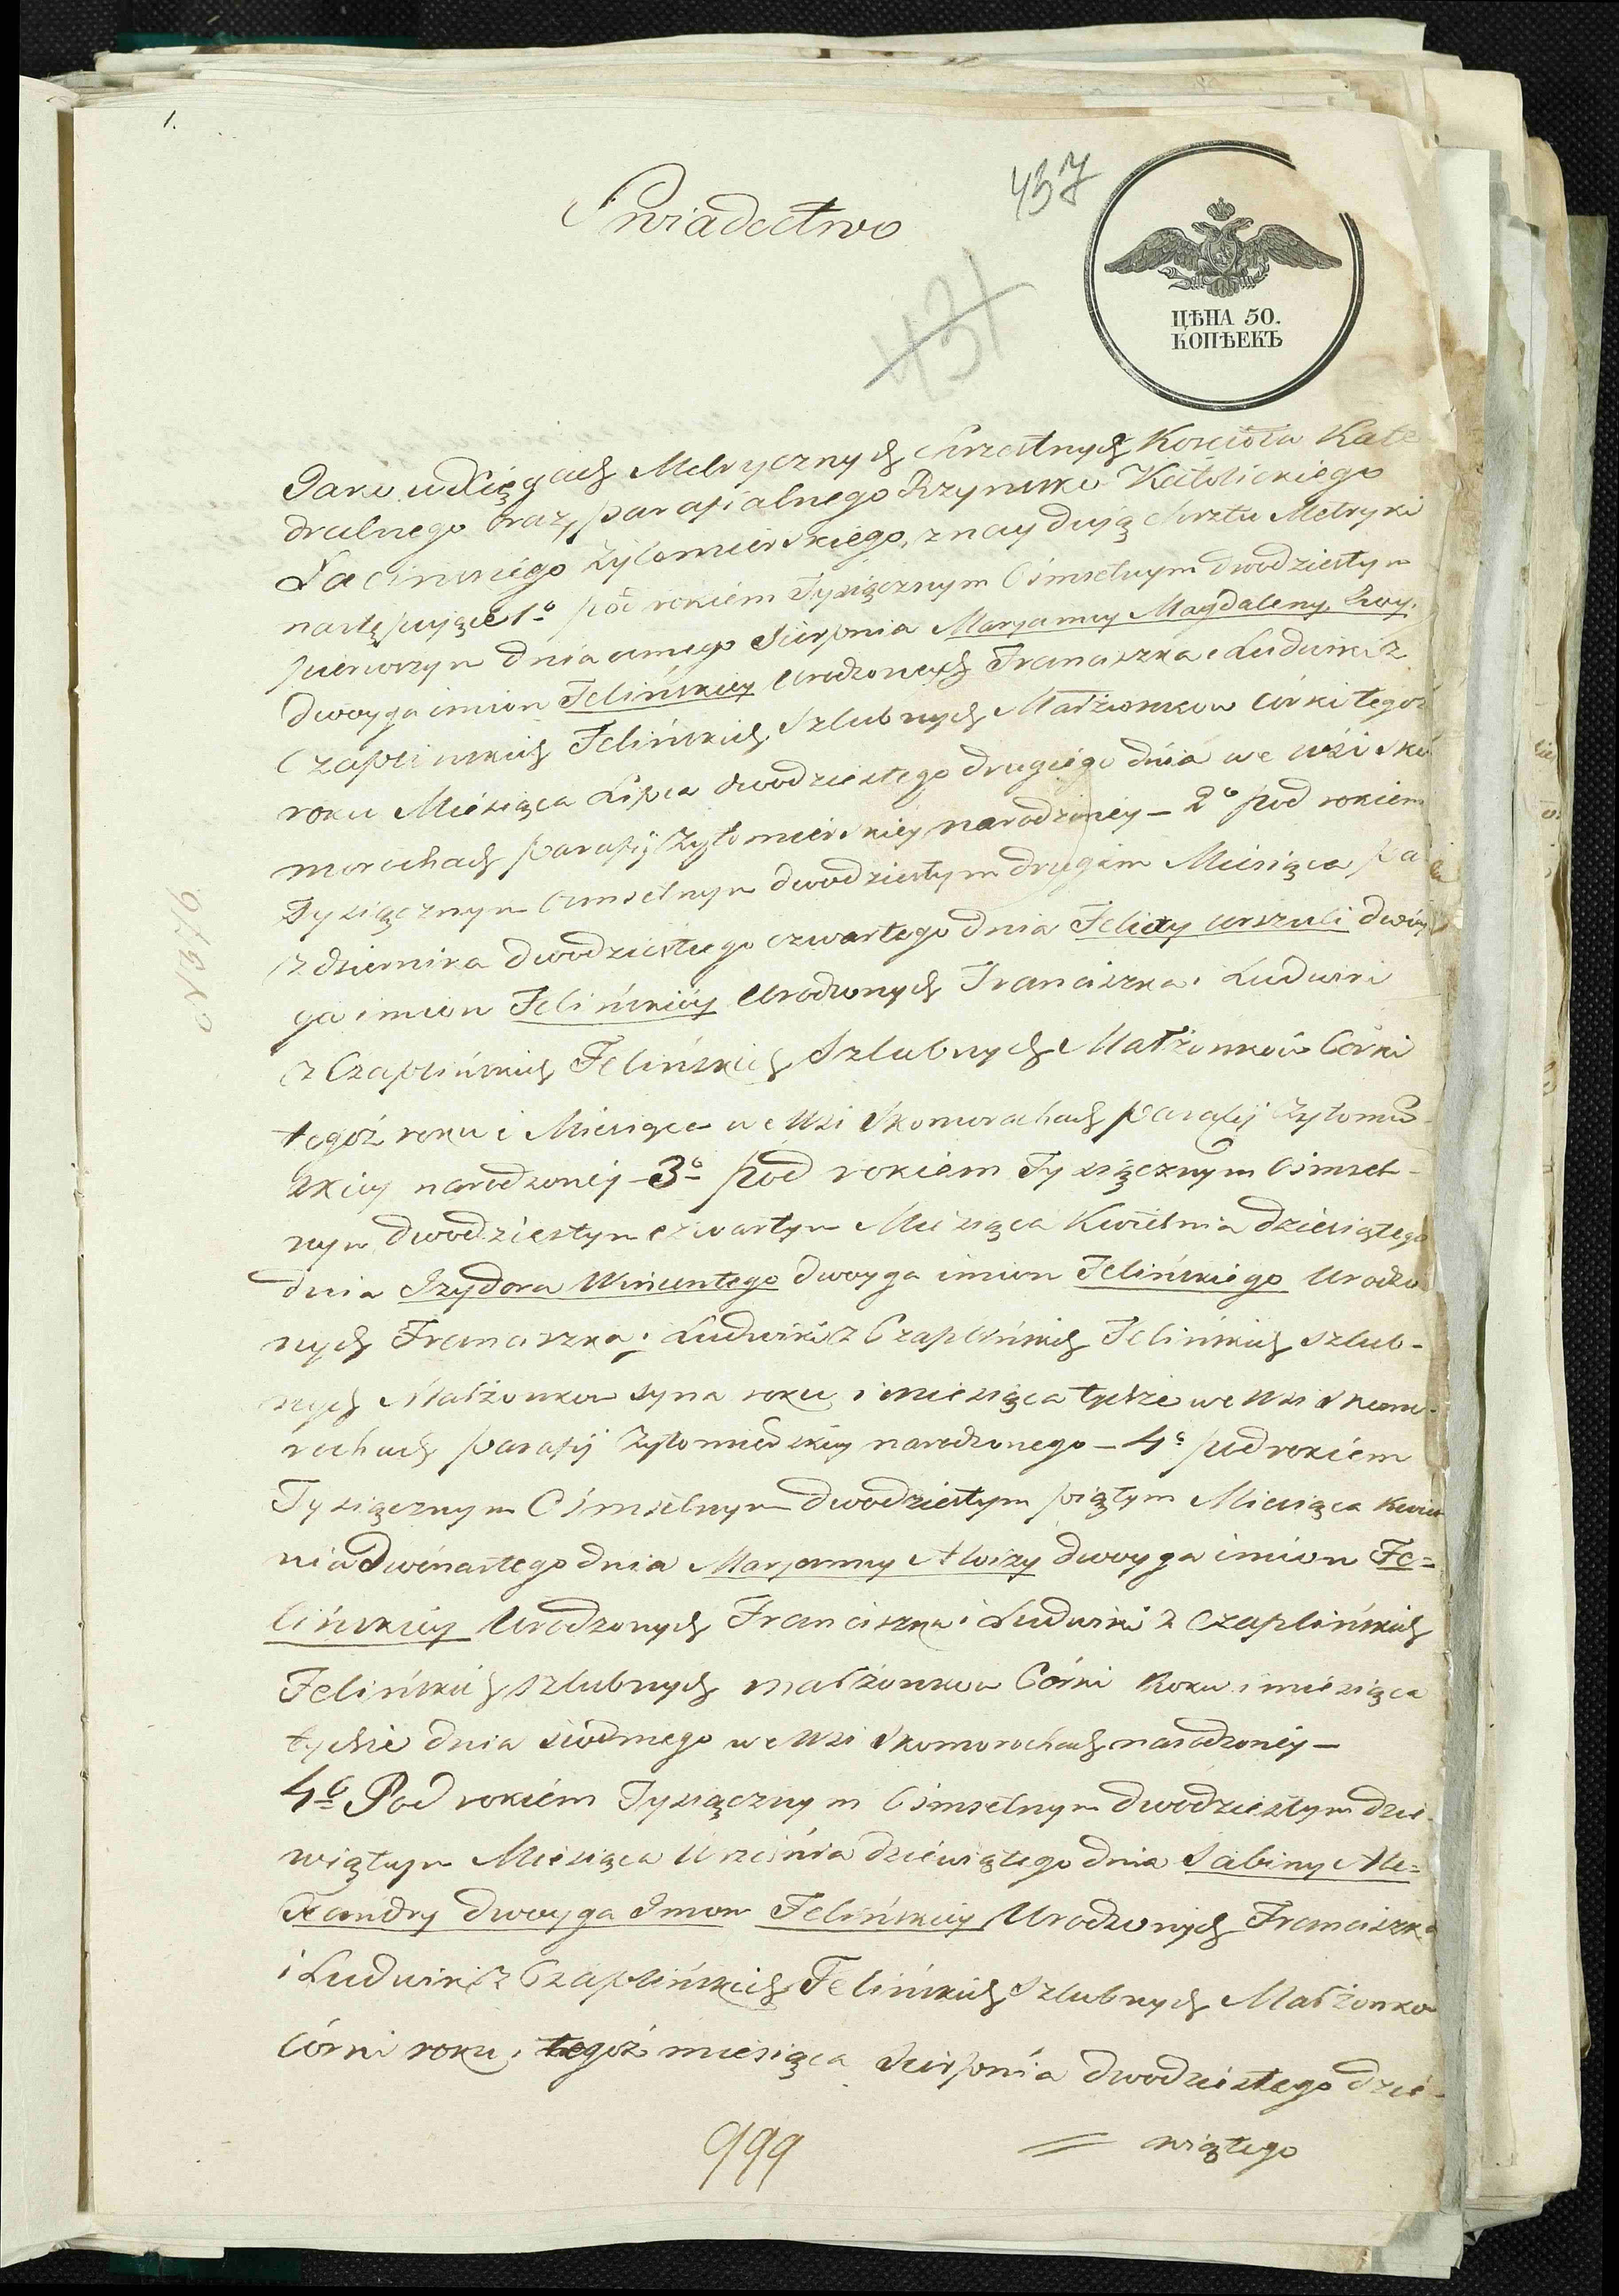 1.
Swiadectwo
437
431
ЦѢНА 50.
КОПѢЕКЪ
Jako w Xięgach Metrycznych Chrzestnych Kościoła Kate
dralnego oraz parafialnego Rzymsko Katolickiego
Łacinskiego Zytomierskiego, znaydują Chrztu Metryki
następujące 1o pod rokiem Tysiącznym Ośmsetnym dwudziestym
pierwszym dnia osmego Sierpnia Maryanny Magdaleny
dwoyga imion Felińskiey Urodzonych Franciszka i Ludwiki z
Czaplinskich Felińskich Szlubnych Małżonkow Córki tegoż
roku Miesiąca Lipca dwudziestego drugiego dnia we wsi Sko
morochach parafij Zytomierskiey narodzoney - 2o pod rokiem
Tysiącznym Osmsetnym dwudziestym drugim Miesiąca Pa
zdziernika dwudziestego czwartego dnia Felicity Urszuli dwóy
ga imion Felińskiéy Urodzonych Franciszka i Ludwiki
z Czaplińskich Felińskich Szlubnych Małżonków Córki
tegoż roku i Miesiąca we Wsi Skomorochach parafij Zytomier
skiey narodzonéy - 3o pod rokiem Tysiącznym Ośmset-
nym dwudziestym czwartym Miesiąca Kwietnia dziesiątego
dnia Izydora Wincentego dwoyga imion Felińskiego Urodzo
nych Franciszka i Ludwiki z Czaplińskich Felińskich Szlub-
nych Małżonkow Syna roku i miesiąca tychże we Wsi Skomo-
rochach parafij Zytomierskiey narodzonego - 4o pod rokiem
Tysiącznym Ośmsetnym dwudziestym piątym Miesiąca Kwiet
nia dwónastego dnia Maryanny Aloizy dwoyga imion Fe=
lińskiey Urodzonych Franciszka i Ludwiki z Czaplińskich
Felińskich szlubnych małżonkow Córki Roku i miesiąca
tychże dnia siodmego we Wsi Skomorochach narodzonéy -
4o Pod rokiem Tysiącznym Ośmsetnym dwudziestym dzie-
wiątym Miesiąca Września dziewiątego dnia Sabiny Ale=
xandry dwoyga Imon Felińskiey Urodzonych Franciszka
i Ludwiki z Czaplińskich Felińskich Szlubnych Małżonkow
Córki roku tegoż miesiąca Sierpnia dwudziestego dzie-
= wiątego
999